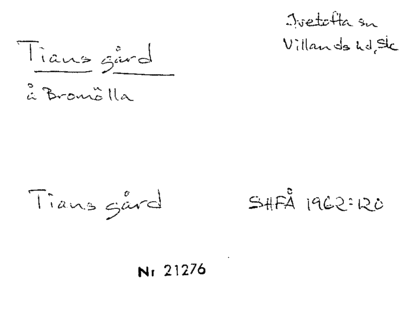 Ivetofta sn
Villands hd, Sk
Tians gård
å Bromölla
Tians gård
SHFÅ 1962:120
Nr 21276